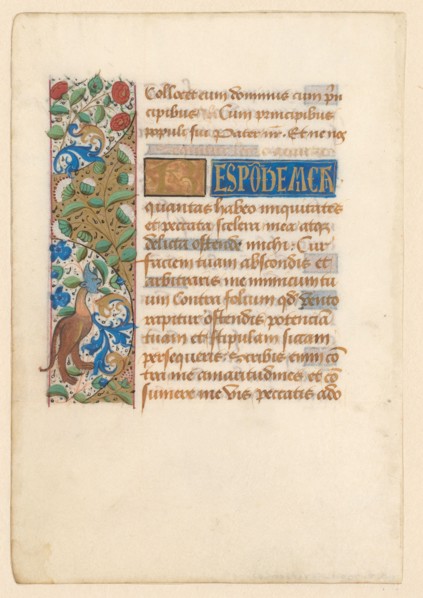 Collocet eum dominus cum prin
cipibus Cum principibus
populi sui Pater nr̄. Et ne nos
ESPŌDE MCĀ
quantas habeo iniquitates
et peccata scelera mea atqȝ
delicta ostende michi. Cur
faciem tuam abscondis et
arbitraris me inimicum tu
um Contra folium qd̄ vento
rapitur ostendis potenciā
tuam et stipulam siccam
persequeris. Scribis enim cō
tra me amaritudines et cō
sumere me vis peccatis ado